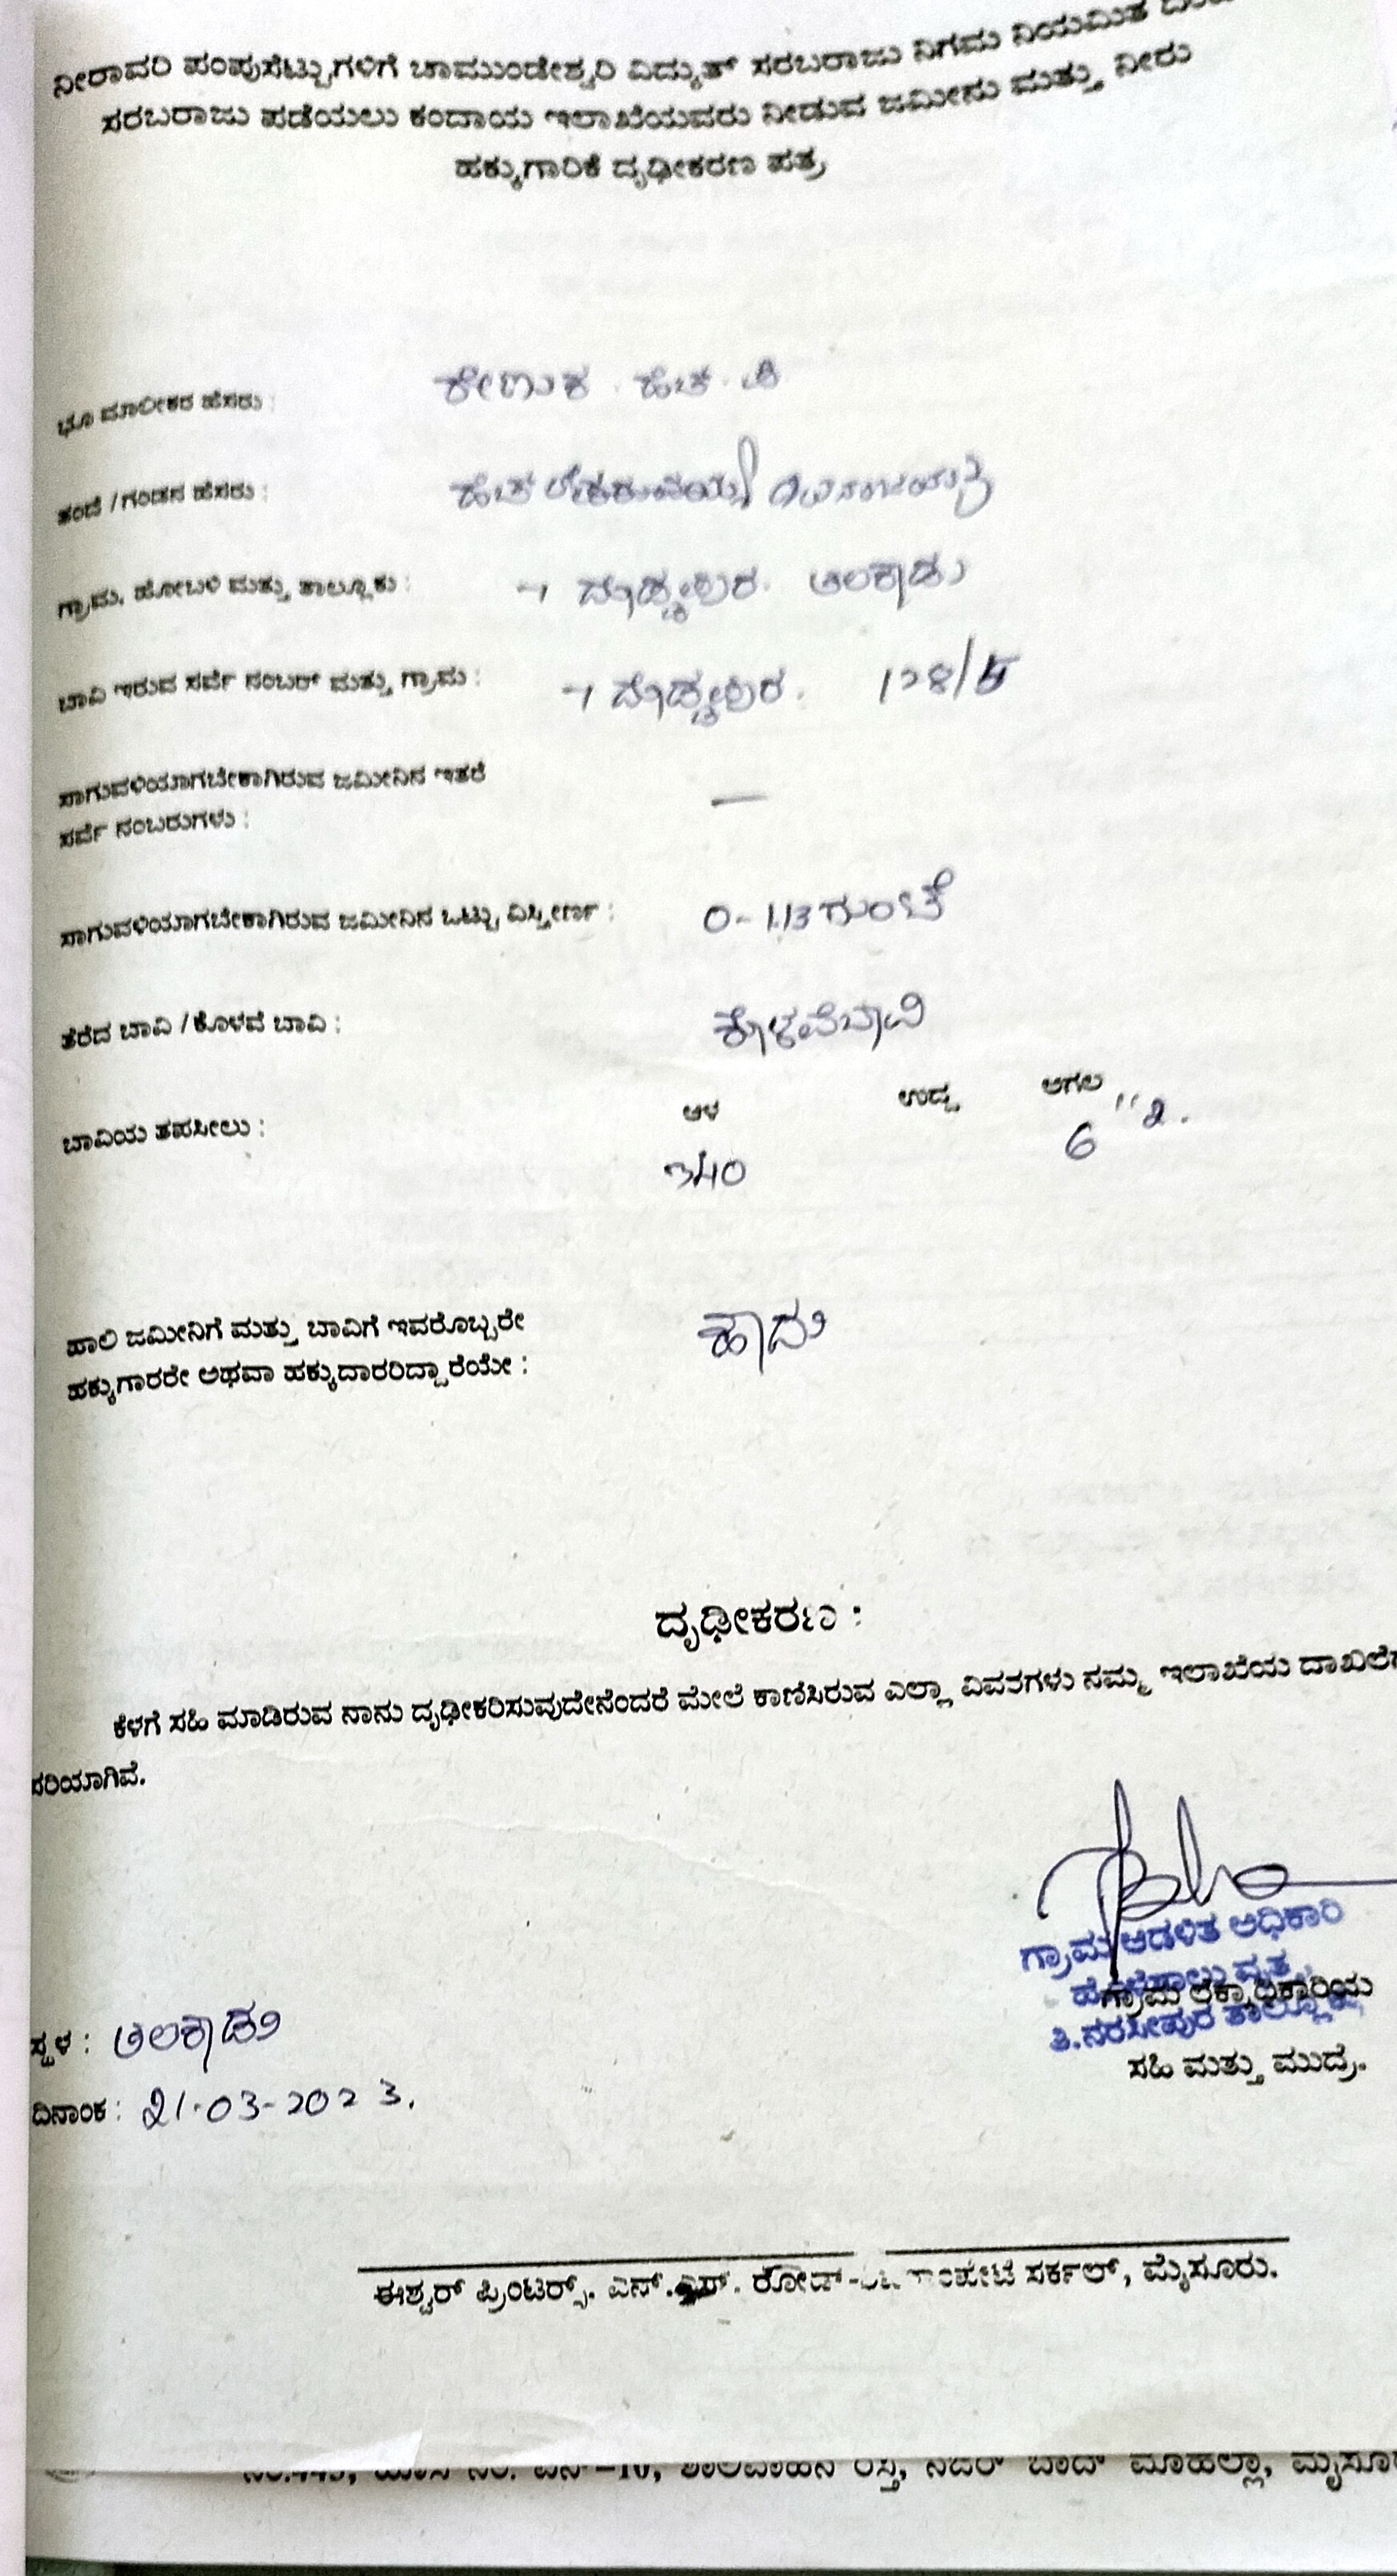 ನೀರಾವರಿ ಪಂಪುಸೆಟ್ಟುಗಳಿಗೆ ಚಾಮುಂಡೇಶ್ವರಿ ವಿದ್ಯುತ್ ಸರಬರಾಜು ನಿಗಮ ನಿಯಮಿತ
ಸರಬರಾಜು ಪಡೆಯಲು ಕಂದಾಯ ಇಲಾಖೆಯವರು ನೀಡುವ ಜಮೀನು ಮತ್ತು ನೀರು
ಹಕ್ಕುಗಾರಿಕೆ ದೃಢೀಕರಣ ಪತ್ರ
ಭೂ ಮಾಲೀಕರ ಹೆಸರು : ರೇಣುಕ ಹೆಚ್
ತಂದೆ / ಗಂಡನ ಹೆಸರು :
ಗ್ರಾಮ, ಹೋಬಳಿ ಮತ್ತು ತಾಲ್ಲೂಕು : ದೊಡ್ಡಪುರ. ತಲಕಾಡು
ಬಾವಿ ಇರುವ ಸರ್ವೆ ನಂಬರ್ ಮತ್ತು ಗ್ರಾಮ : ದೊಡ್ಡಪುರ. 128/5
ಸಾಗುವಳಿಯಾಗಬೇಕಾಗಿರುವ ಜಮೀನಿನ ಇತರೆ
ಸರ್ವೆ ನಂಬರುಗಳು : —
ಸಾಗುವಳಿಯಾಗಬೇಕಾಗಿರುವ ಜಮೀನಿನ ಒಟ್ಟು ವಿಸ್ತೀರ್ಣ : 0-1.13 ಗುಂಟೆ
ತೆರೆದ ಬಾವಿ / ಕೊಳವೆ ಬಾವಿ : ಕೊಳವೆಬಾವಿ
ಬಾವಿಯ ತಪಸೀಲು : ಆಳ ಉದ್ದ ಅಗಲ
340 6 "2.
ಹಾಲಿ ಜಮೀನಿಗೆ ಮತ್ತು ಬಾವಿಗೆ ಇವರೊಬ್ಬರೇ
ಹಕ್ಕುಗಾರರೇ ಅಥವಾ ಹಕ್ಕುದಾರರಿದ್ದಾರೆಯೇ : ಹೌದು
ದೃಢೀಕರಣ :
ಕೆಳಗೆ ಸಹಿ ಮಾಡಿರುವ ನಾನು ದೃಢೀಕರಿಸುವುದೇನೆಂದರೆ ಮೇಲೆ ಕಾಣಿಸಿರುವ ಎಲ್ಲಾ ವಿವರಗಳು ನಮ್ಮ ಇಲಾಖೆಯ
ಸರಿಯಾಗಿವೆ.
ಗ್ರಾಮ ಆಡಳಿತ ಅಧಿಕಾರಿ
ಗ್ರಾಮ ಲೆಕ್ಕಾಧಿಕಾರಿಯ
ತಿ.ನರಸೀಪುರ ತಾಲ್ಲೂಕು
ಸಹಿ ಮತ್ತು ಮುದ್ರೆ.
ಸ್ಥಳ : ತಲಕಾಡು
ದಿನಾಂಕ : 21-03-2023.
ಈಶ್ವರ್ ಪ್ರಿಂಟರ್ಸ್, ಎನ್. ರೋಡ್ ಸರ್ಕಲ್, ಮೈಸೂರು.